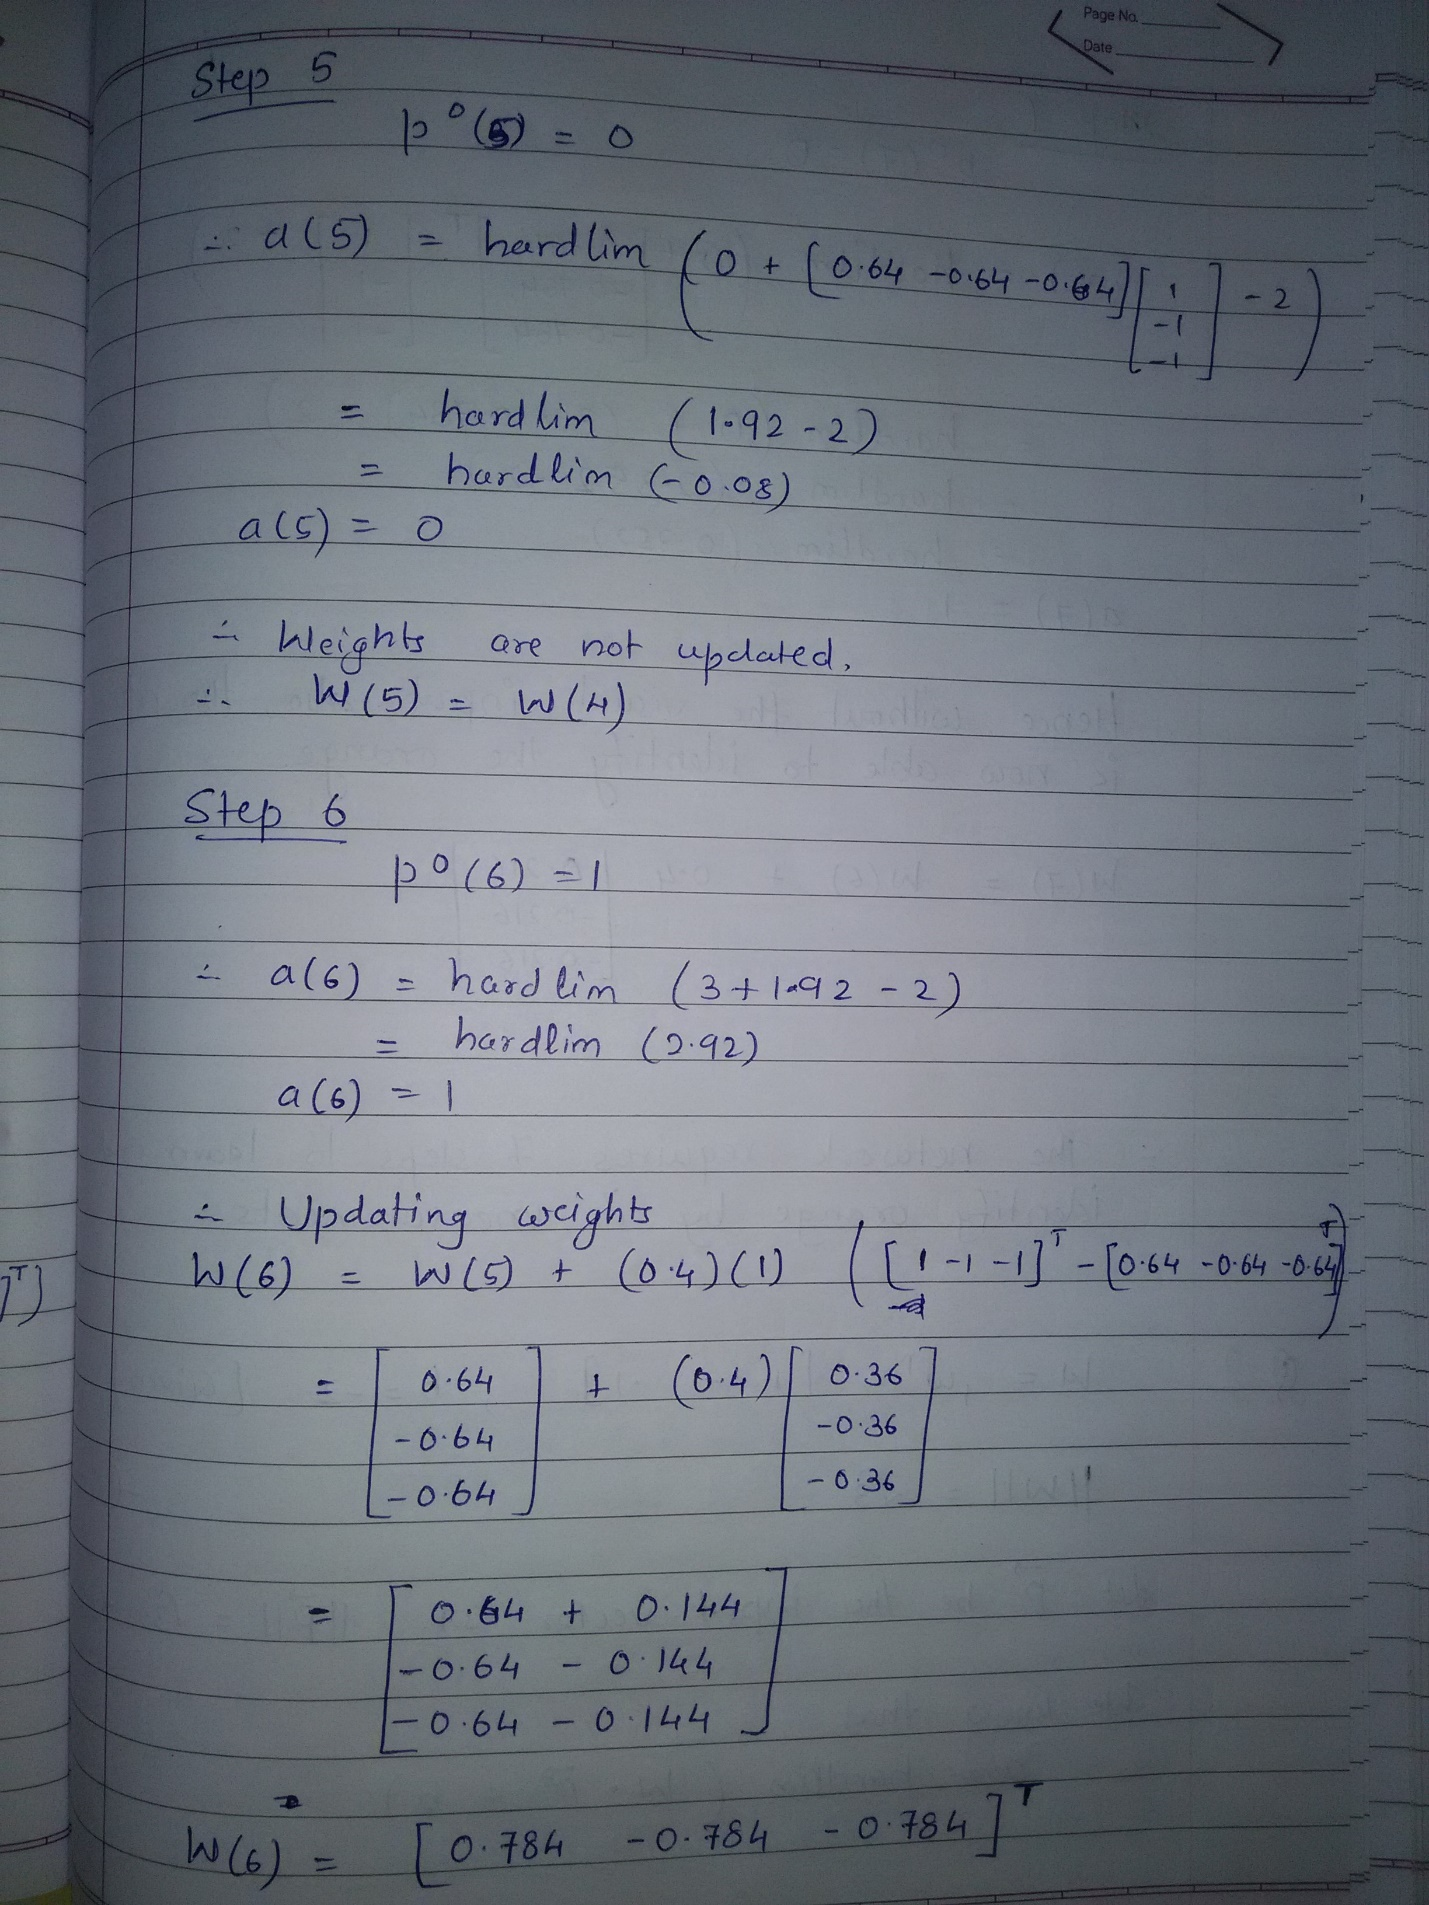 Page No.
Date
Step 5
p⁰(5) = 0
∴ a(5) = hardlim (0 + [0.64 -0.64 -0.64] [1 -1 -1] - 2)
= hardlim (1.92 - 2)
= hardlim (-0.08)
a(5) = 0
∴ Weights are not updated.
∴ W(5) = W(4)
Step 6
p⁰(6) = 1
∴ a(6) = hardlim (3 + 1.92 - 2)
= hardlim (2.92)
a(6) = 1
∴ Updating weights
W(6) = W(5) + (0.4)(1) ([1 -1 -1]ᵀ - [0.64 -0.64 -0.64]ᵀ)
= [0.64] + (0.4) [0.36]
-0.64 -0.36
-0.64 -0.36
= [0.64 + 0.144]
-0.64 - 0.144
-0.64 - 0.144
W(6) = [0.784 -0.784 -0.784]ᵀ